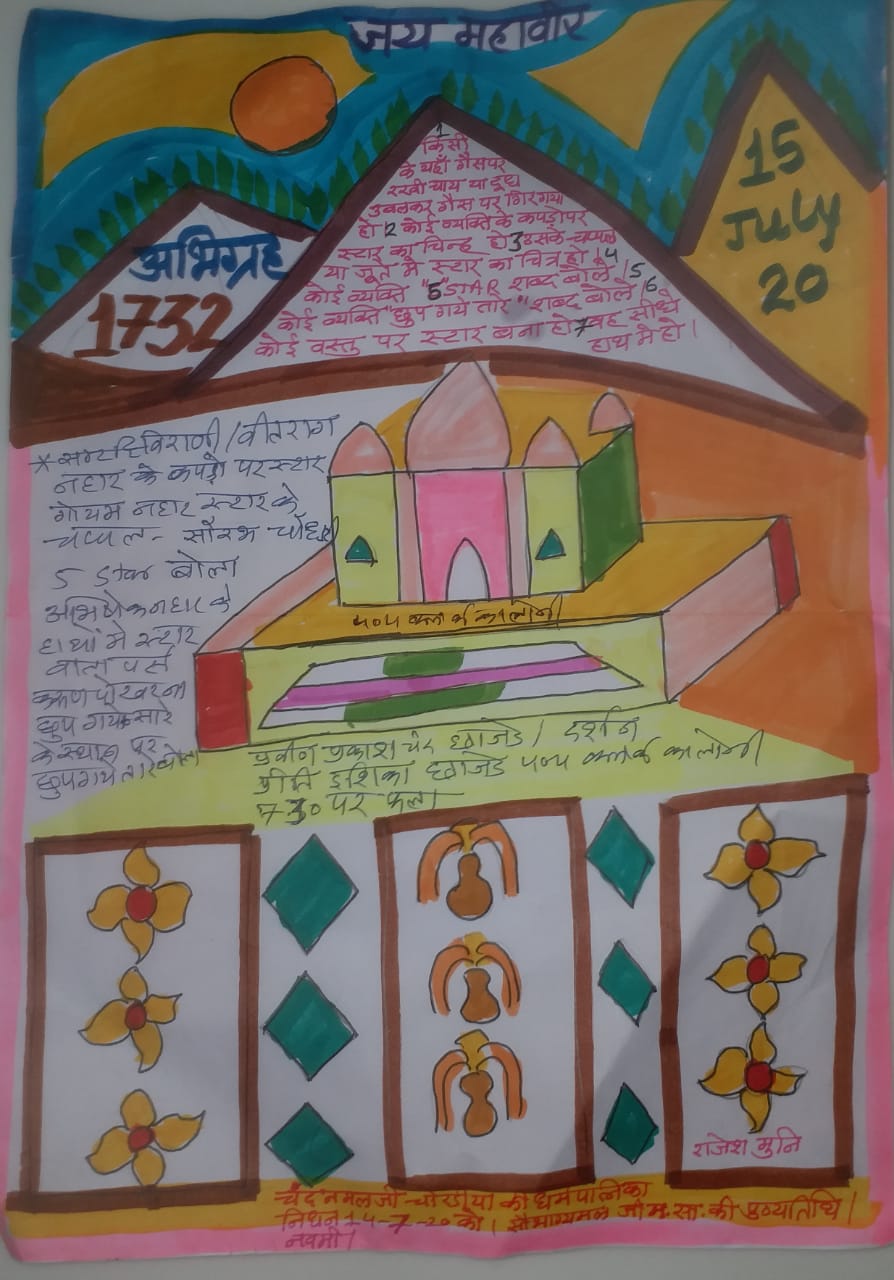 जय महावीर
अभिग्रह
1732
15
July
20
1
किसी
के यहाँ गैसपर
रखी चाय या दूध
उबलकर गैस पर गिरगया
हो 2 कोई व्यक्ति के कपड़ोपर
स्टार का चिन्ह हो 3 उसके चप्पल
या जूते मे स्टार का चित्र हो 4
कोई व्यक्ति "5" STAR शब्द बोले 5
कोई व्यक्ति "छुप गये तारे" शब्द बोले 6
कोई वस्तु पर स्टार बना हो 7 वह सीधे
हाथ मे हो।
* / वीतराग
नहार के कपड़ो पर स्टार
गोयम नहार स्टार के
चप्पल - सौरभ
5 Star बोला
अभिषेक नहार के
हाथो मे स्टार
वाला पर्स
छुप गये सारे
के स्थान पर
छुप गये तारे बोला
कालोनी
प्रवीन प्रकाश चंद छाजेड / दर्शन
प्रीति इशिका छाजेड कालोनी
7-30 पर फला
राजेश मुनि
चंदनमलजी चोरडीया की धर्मपत्निका
निधन 14-7-20 को। सौभाग्यमल जी म.सा. की पुण्यतिथि।
नवमी।